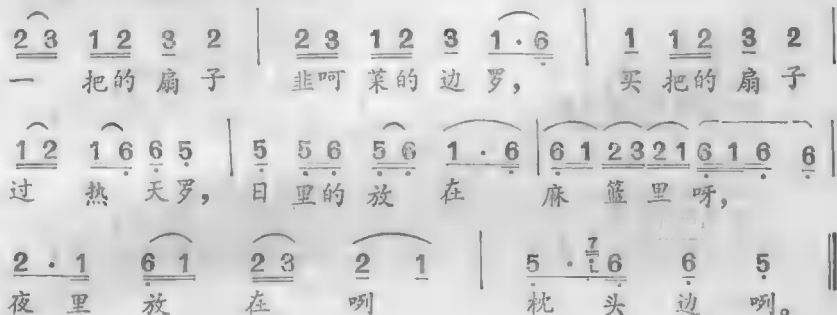 2 3 1 2 3 2 | 2 3 1 2 3 1 · 6 | 1 1 2 3 2 |
一 把的 扇 子 韭呵 菜的 边 罗, 买 把的 扇 子
1 2 1 6 6 5 | 5 5 6 5 6 1 · 6 | 6 1 2 3 2 1 6 1 6 6 |
过 热 天罗, 日 里的 放 在 麻 篮 里 呀,
2 · 1 6 1 2 3 2 1 | 5 · 6 6 5 ‖
夜 里 放 在 咧 枕 头 边 咧。